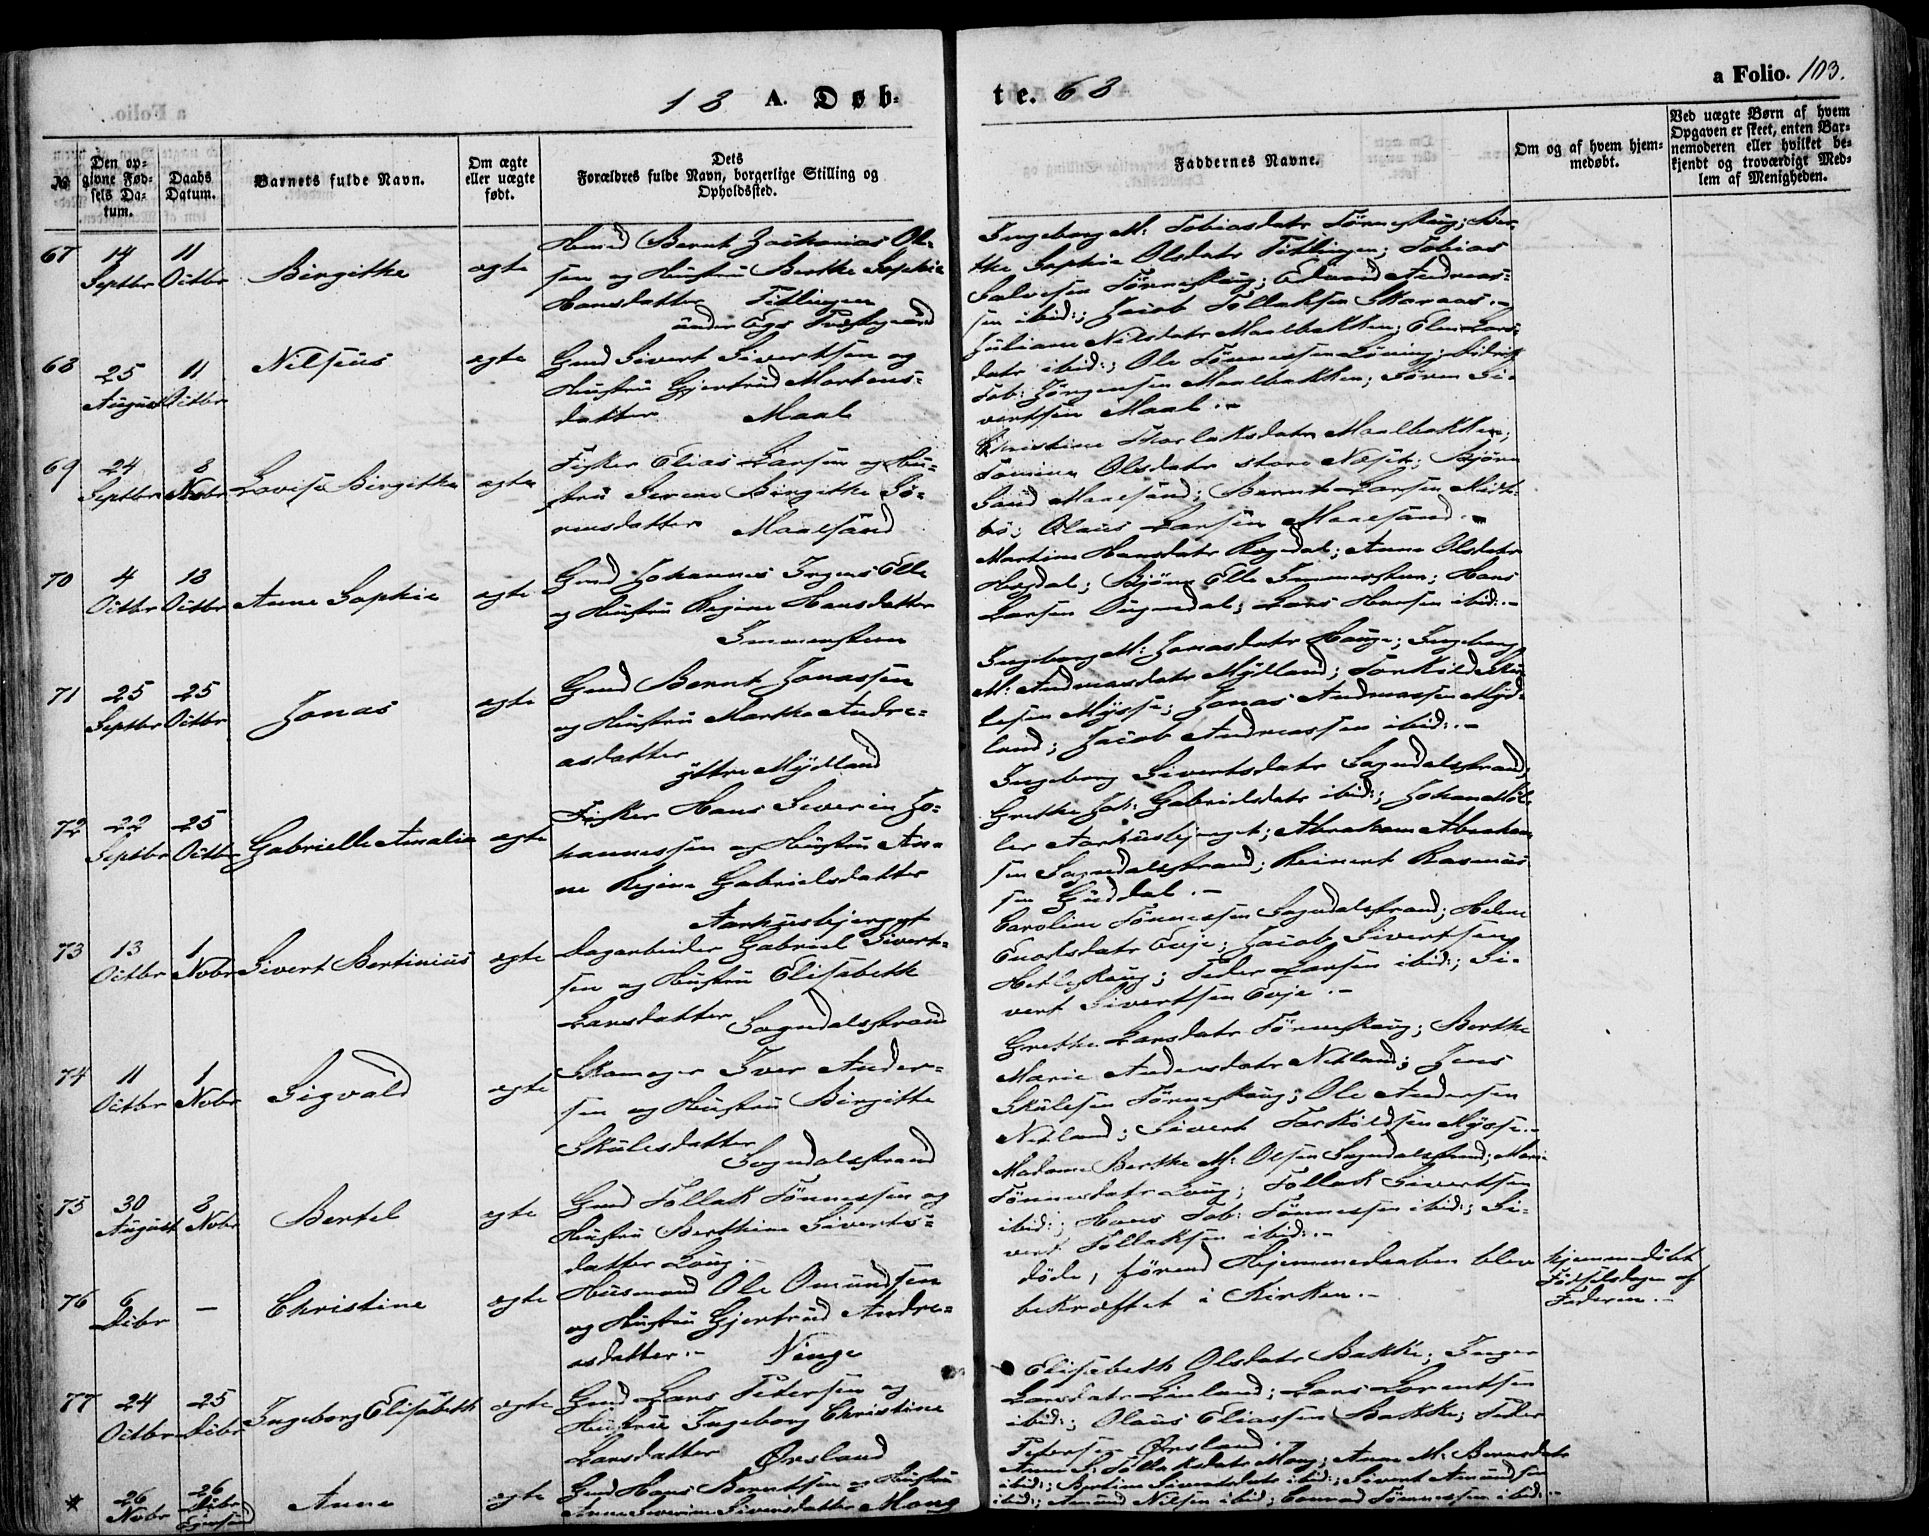 18 A. Døb-
te. 68
a Folio. 103.
№
Den op-
givne Fød-
sels Da-
tum.
Daabs
Datum.
Barnets fulde Navn.
Om ægte
eller uægte
født.
Dets
Forældres fulde Navn, borgerlige Stilling og
Opholdssted.
Faddernes Navne.
Om og af hvem hjem-
medøbt.
Ved uægte Børn af hvem
Opgaven er skeet, enten Bar-
nemoderen eller hvilket be-
kjendt og troværdigt Med-
lem af Menigheden.
67
14 Septbr
11 Octbr
Birgithe
ægte
Bernt Zakarias Ol-
sen og Hustru Berthe Sophie
Hansdatter Titlingen
under
Ingeborg M: Tobiasdatr Tønneshaug; Ber-
the Sophie Olsdatr Titlingen; Tobias
Salvesen Tønneshaug; Edvard Andreas-
sen ibid:; Jacob Tollaksen Skaraas.-
68
25 August
11 Octbr
Nilseus
ægte
Gmd Sivert Sivertsen og
Hustru Gjertrud Martens-
datter Maal
Juliane Nilsdatr Maalbakken; Elen Lars-
datr ibid:; Ole Tønnessen
Tob: Jørgensen Maalbakken; Søren Si-
vertsen Maal.-
69
24 Septbr
8 Novbr
Lovise Birgithe
ægte
Fisker Elias Larsen og Hu-
stru Serene Birgithe Sø-
rensdatter Maalsund
Christine Thorlaksdatr Maalbakken;
Tomine Olsdatr store Neset; Bjørn
Maalsund; Bernt Larsen Midt-
bø; Olaus Larsen Maalsund.-
70
4 Octbr
18 Octbr
Anne Sophie
ægte
Gmd Johannes Elle
og Hustru Regine Hansdatter
Immerstein
Martine Hansdatr Regedal; Anne Olsdatr
Hegdal; Bjørn Elle Immerstein; Hans
Larsen; Lars Hansen ibid:.-
71
25 Septbr
25 Octbr
Jonas
ægte
Gmd Bernt Jonassen
og Hustru Marthe Andre-
asdatter
ÿttre Mÿdland
Ingeborg M: Jonasdatr Hauge; Ingeborg
M: Andreasdatr Mÿdland; Torkild
Mÿsse; Jonas Andreassen Mÿd-
land; Jacob Andreassen ibid:.-
72
22 Septbr
25 Octbr
Gabrielle Amalie
ægte
Fisker Hans Severin Jo-
hannessen og Hustru An-
ne Regine Gabrielsdatter
Aarhusbjerget
Ingeborg Sivertsdatr Sogndalstrand;
Grethe Gabrielsdatr ibid:; Johan Møl-
ler Aarhusbjerget; Abraham Abraham-
sen Sogndalstrand; Reinert Rasmus-
sen Guddal.-
73
13 Octbr
1 Novbr
Sivert Bertinius
ægte
Dagarbeider Gabriel Sivert-
sen og Hustru Elisabeth
Larsdatter Sogndalstrand
Caroline Tønnessen Sogndalstrand; Helene
Enoksdatr Evje; Jacob Sivertsen
Hetleskaug; Peder Larsen ibid:; Si-
vert Sivertsen Evje.-
74
11 Octbr
1 Novbr
Sigvald
ægte
Skomager Iver Ander-
sen og Hustru Birgitte
Skulesdatter
Sogndalstrand
Grethe Larsdatr Tønneshaug; Berthe
Marie Andersdatr Netland; Jens
Skulesen Tønneshaug; Ole Andersen
Netland; Sivert Torkildsen Mÿsse.-
75
30 August
8 Novbr
Bertel
ægte
Gmd Tollak Tønnessen og
Hustru Berthine Siverts-
datter Løug.-
Madame Berthe M: Olsen Sogndalstrand; Marie
Tønnesdatr Løug; Tollak Sivertsen
ibid:; Hans Tob: Tønnessen ibid:; Si-
vert Tollaksen ibid:.-
76
6 Decbr
–
Christine
ægte
Husmand Ole Omundsen
og Hustru Gjertrud Andre-
asdatter.- Vinge
døde, førend Hjemmedaaben blev
bekræftet i Kirken.-
hjemmedøbt
Fødselsdagen af
Faderen.-
77
24 Octbr
25 Decbr
Ingeborg Elisabeth
ægte
Gmd Hans Petersen og
Hustru Ingeborg Christine
Larsdatter Ørsland
Elisabeth Olsdatr Bakke; Inger
Larsdatr Linland; Lars Lorentsen
ibid:; Olaus Eliassen Bakke; Peder
Petersen Ørsland.-
*
26 Novbr
26 Decbr
Anne
ægte
Gmd Hans Berntsen og Hustru
Anne Severine Siversdatter Mong
Anne S: Tollaksdatr Mong; Anne M: Berntsdatr
ibid:; Bertine Sivertsdatr ibid:; Sivert Amundsen
ibid:; Amund Nilsen ibid; Conrad Tønnessen ibid:.-